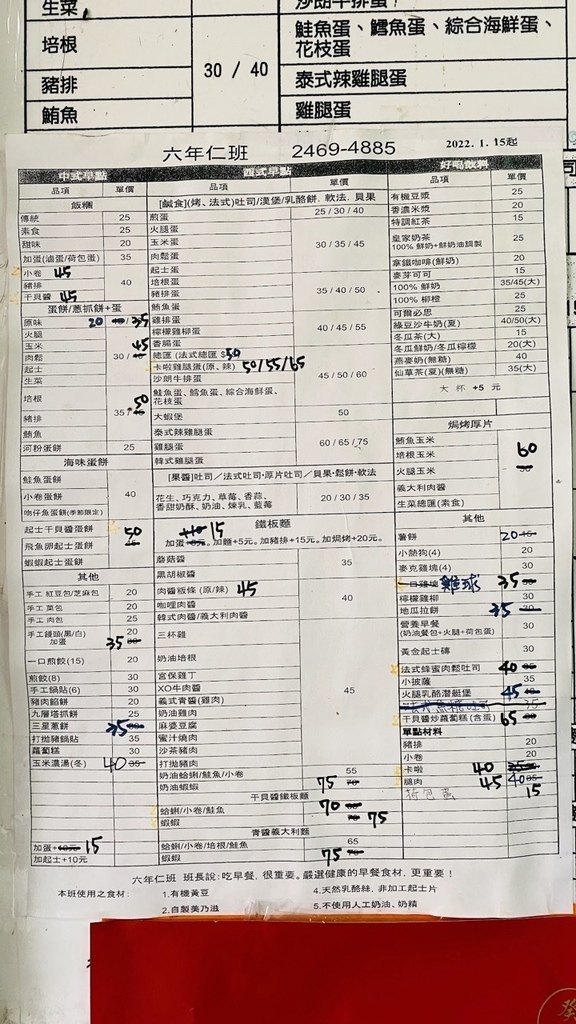 生菜
培根
豬排
鮪魚
30 / 40
鮭魚蛋、鱈魚蛋、綜合海鮮蛋、
花枝蛋
泰式辣雞腿蛋
雞腿蛋
六年仁班 2469-4885 2022. 1. 15起
中式早點
品項 單價
飯糰
傳統 25
素食 25
甜味 20
加蛋(滷蛋/荷包蛋) 35
小卷 45
豬排 40
干貝醬 45
蛋餅/蔥抓餅+蛋
原味 20 / 35
火腿
玉米 45
肉鬆 30 /
起士
生菜
培根 50
豬排 35
鮪魚
河粉蛋餅 25
海味蛋餅
鮭魚蛋餅
小卷蛋餅 40
吻仔魚蛋餅(季節限定)
起士干貝醬蛋餅 50
飛魚卵起士蛋餅
蝦蝦起士蛋餅
其他
手工 紅豆包/芝麻包 20
手工 菜包 20
手工 肉包 25
手工饅頭(黑/白) 20
加蛋 35
一口煎餃(15) 20
煎餃(8) 30
手工鍋貼(6) 30
豬肉餡餅 20
九層塔抓餅 25
三星蔥餅 35
打拋豬鍋貼 35
蘿蔔糕 30
玉米濃湯(冬) 40
加蛋+ 15
加起士+10元
西式早點
品項 單價
[鹹食](烤、法式)吐司/漢堡/乳酪餅、軟法、貝果
煎蛋 25 / 30 / 40
火腿蛋
玉米蛋 30 / 35 / 45
肉鬆蛋
起士蛋
培根蛋 35 / 40 / 50
豬排蛋
鮪魚蛋
雞排蛋
檸檬雞柳蛋 40 / 45 / 55
香腸蛋
總匯 (法式總匯 $50
卡啦雞腿蛋(原、辣) 50/55/65
沙朗牛排蛋 45 / 50 / 60
鮭魚蛋、鱈魚蛋、綜合海鮮蛋、
花枝蛋
大蝦堡 50
泰式辣雞腿蛋
雞腿蛋 60 / 65 / 75
韓式雞腿蛋
[果醬]吐司／法式吐司·厚片吐司／貝果·鬆餅·軟法
花生、巧克力、草莓、香蒜、
香甜奶酥、奶油、煉乳、藍莓 20 / 30 / 35
鐵板麵
15
加蛋 、加麵+5元。加豬排+15元。加焗烤+20元。
蘑菇醬 35
黑胡椒醬
肉醬板條 (原/辣) 45
咖哩肉醬 40
韓式肉醬/義大利肉醬
三杯雞
奶油培根
宮保雞丁
XO牛肉醬
義式青醬(雞肉) 45
奶油雞肉
麻婆豆腐
蜜汁燒肉
沙茶豬肉
打拋豬肉
奶油蛤蜊/鮭魚/小卷 55
奶油蝦蝦 75
干貝醬鐵板麵
蛤蜊/小卷/鮭魚 70
蝦蝦 75
青醬義大利麵
蛤蜊/小卷/培根/鮭魚 65
蝦蝦 75
好喝飲料
品項 單價
有機豆漿 25
香濃米漿 20
特調紅茶 15
皇家奶茶
100% 鮮奶+鮮奶油調製 25
拿鐵咖啡(鮮奶) 40
麥芽可可 15
100% 鮮奶 35/45(大)
100% 柳橙 35
可爾必思 25
綠豆沙牛奶(夏) 40/50(大)
冬瓜茶(大) 15
冬瓜鮮奶/冬瓜檸檬 20(大)
燕麥奶(無糖) 40
仙草茶(夏)(無糖) 35(大)
大 杯 +5 元
焗烤厚片
鮪魚玉米
培根玉米 60
火腿玉米
義大利肉醬
生菜總匯(素食)
其他
薯餅 20
小熱狗(4) 20
麥克雞塊(4) 30
雞球 35
檸檬雞柳 30
地瓜拉餅 35
營養早餐
(奶油餐包+火腿+荷包蛋) 30
黃金起士磚 30
法式蜂蜜肉鬆吐司 40
小披薩 35
火腿乳酪潛艇堡 45
干貝醬炒蘿蔔糕 (含蛋) 65
單點材料
豬排 20
小卷 20
卡啦 40
腿肉 45 40
荷包蛋 15
六年仁班 班長說：吃早餐，很重要。嚴選健康的早餐食材，更重要！
本班使用之食材： 1.有機黃豆 4.天然乳酪絲，非加工起士片
2.自製美乃滋 5.不使用人工奶油、奶精